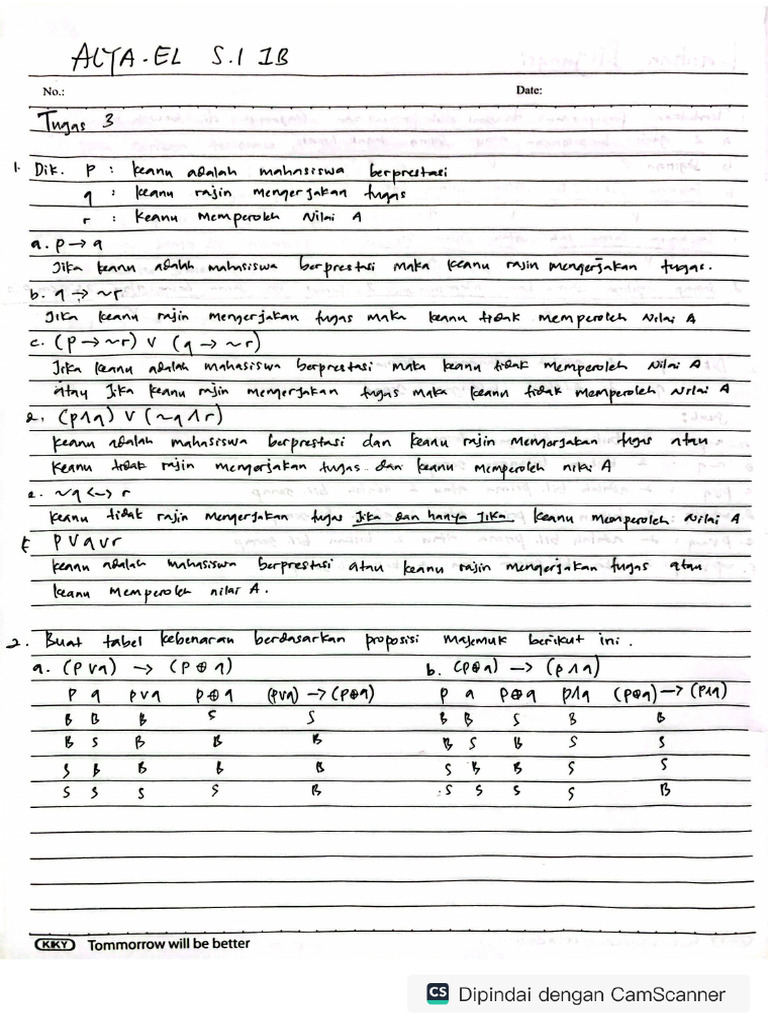 ALYA-EL S.I 1B
No.: Date:
Tugas 3
1. Dik. p : keanu adalah mahasiswa berprestasi
q : keanu rajin mengerjakan tugas
r : keanu memperoleh Nilai A
a. p → q
Jika keanu adalah mahasiswa berprestasi maka keanu rajin mengerjakan tugas.
b. q → ~r
Jika keanu rajin mengerjakan tugas maka keanu tidak memperoleh Nilai A
c. (p → ~r) ∨ (q → ~r)
Jika keanu adalah mahasiswa berprestasi maka keanu tidak memperoleh Nilai A
atau Jika keanu rajin mengerjakan tugas maka keanu tidak memperoleh Nilai A
d. (p∧q) ∨ (~q ∧ r)
keanu adalah mahasiswa berprestasi dan keanu rajin mengerjakan tugas atau
keanu tidak rajin mengerjakan tugas dan keanu memperoleh nilai A
e. ~q <-> r
keanu tidak rajin mengerjakan tugas Jika dan hanya Jika keanu memperoleh Nilai A
f. p ∨ q ∨ r
keanu adalah mahasiswa berprestasi atau keanu rajin mengerjakan tugas atau
keanu memperoleh nilai A.
2. Buat tabel kebenaran berdasarkan proposisi majemuk berikut ini.
a. (p ∨ q) → (p ⊕ q) b. (p⊕q) → (p ∧ q)
p q p∨q p⊕q (p∨q) → (p⊕q) p q p⊕q p∧q (p⊕q) → (p∧q)
B B B S S B B S B B
B S B B B B S B S S
S B B B B S B B S S
S S S S B S S S S B
KIKY Tommorrow will be better
CS Dipindai dengan CamScanner